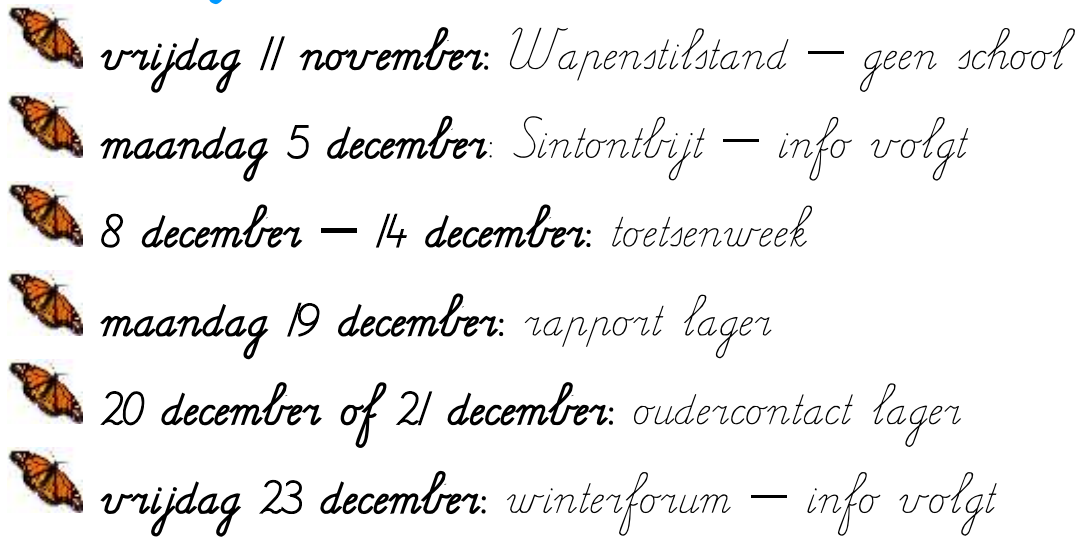 vrijdag 11 november: Wapenstilstand – geen school
maandag 5 december: Sintontbijt – info volgt
8 december – 14 december: toetsenweek
maandag 19 december: rapport lager
20 december of 21 december: oudercontact lager
vrijdag 23 december: winterforum – info volgt